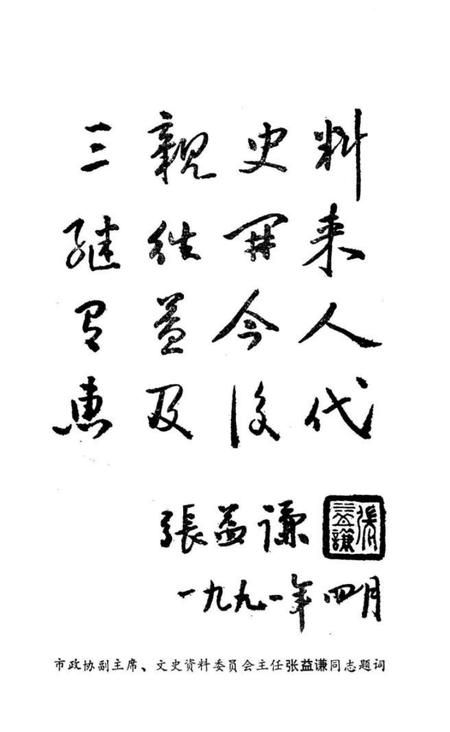 三親史料
继往開来
有益今人
惠及後代
張益谦
張益謙
一九九一年四月
市政协副主席、文史资料委员会主任张益谦同志题词